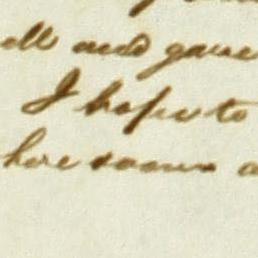 ell and gave
I hope to
here soon a